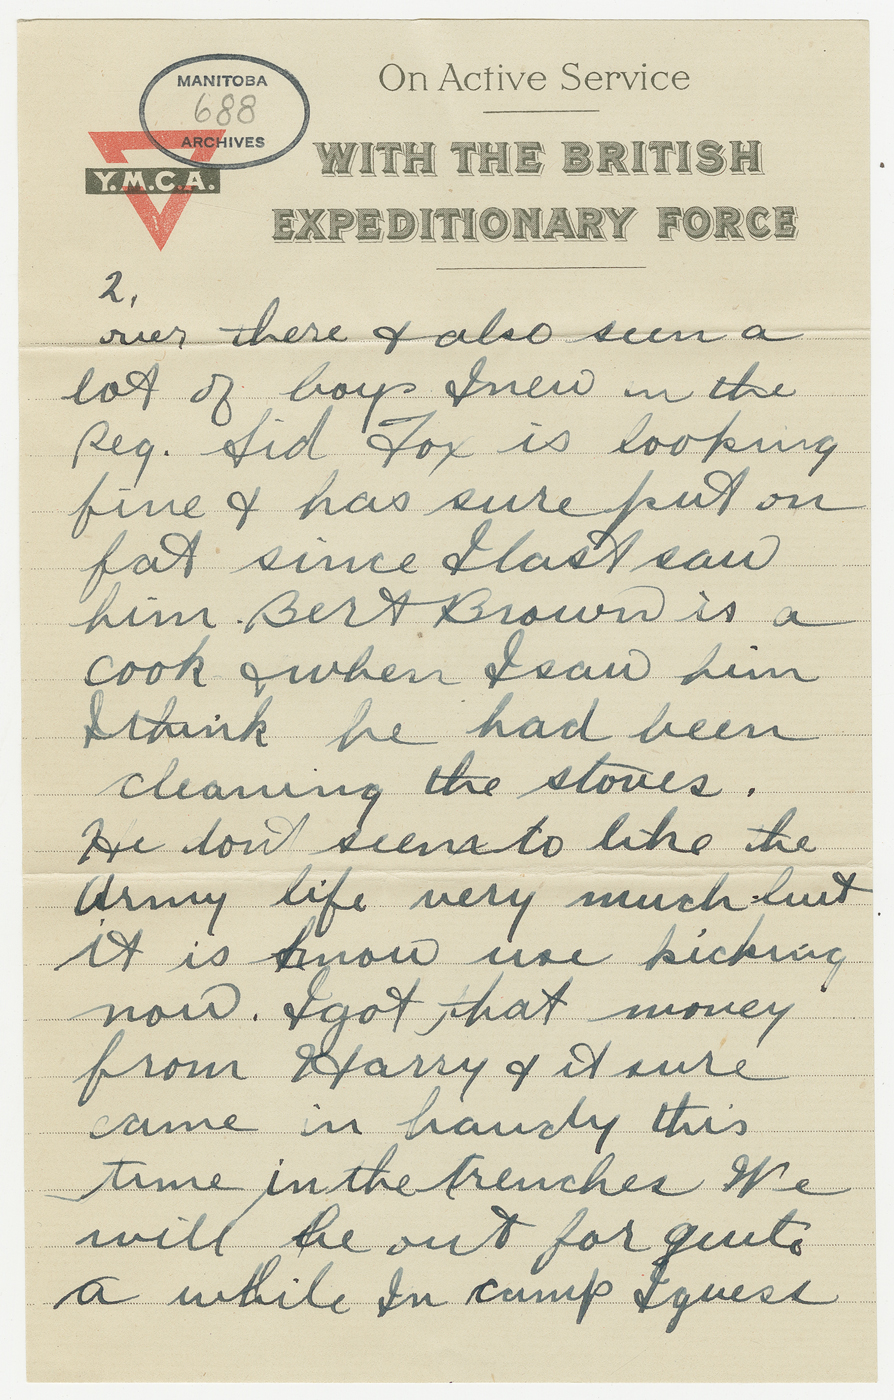 On Active Service
MANITOBA
688
ARCHIVES
WITH THE BRITISH
Y.M.C.A.
EXPEDITIONARY FORCE
2,
over there & also seen a
lot of boys I new in the
Reg. Sid Fox is looking
fine & has sure put on
fat since I last saw
him. Bert Brown is a
cook & when I saw him
I think he had been
cleaning the stoves.
He dont seem to like the
Army life very much but
it is know use kicking
now. I got that money
from Harry & it sure
came in handy this
time in the trenches We
will be out for quite
a while In camp I guess